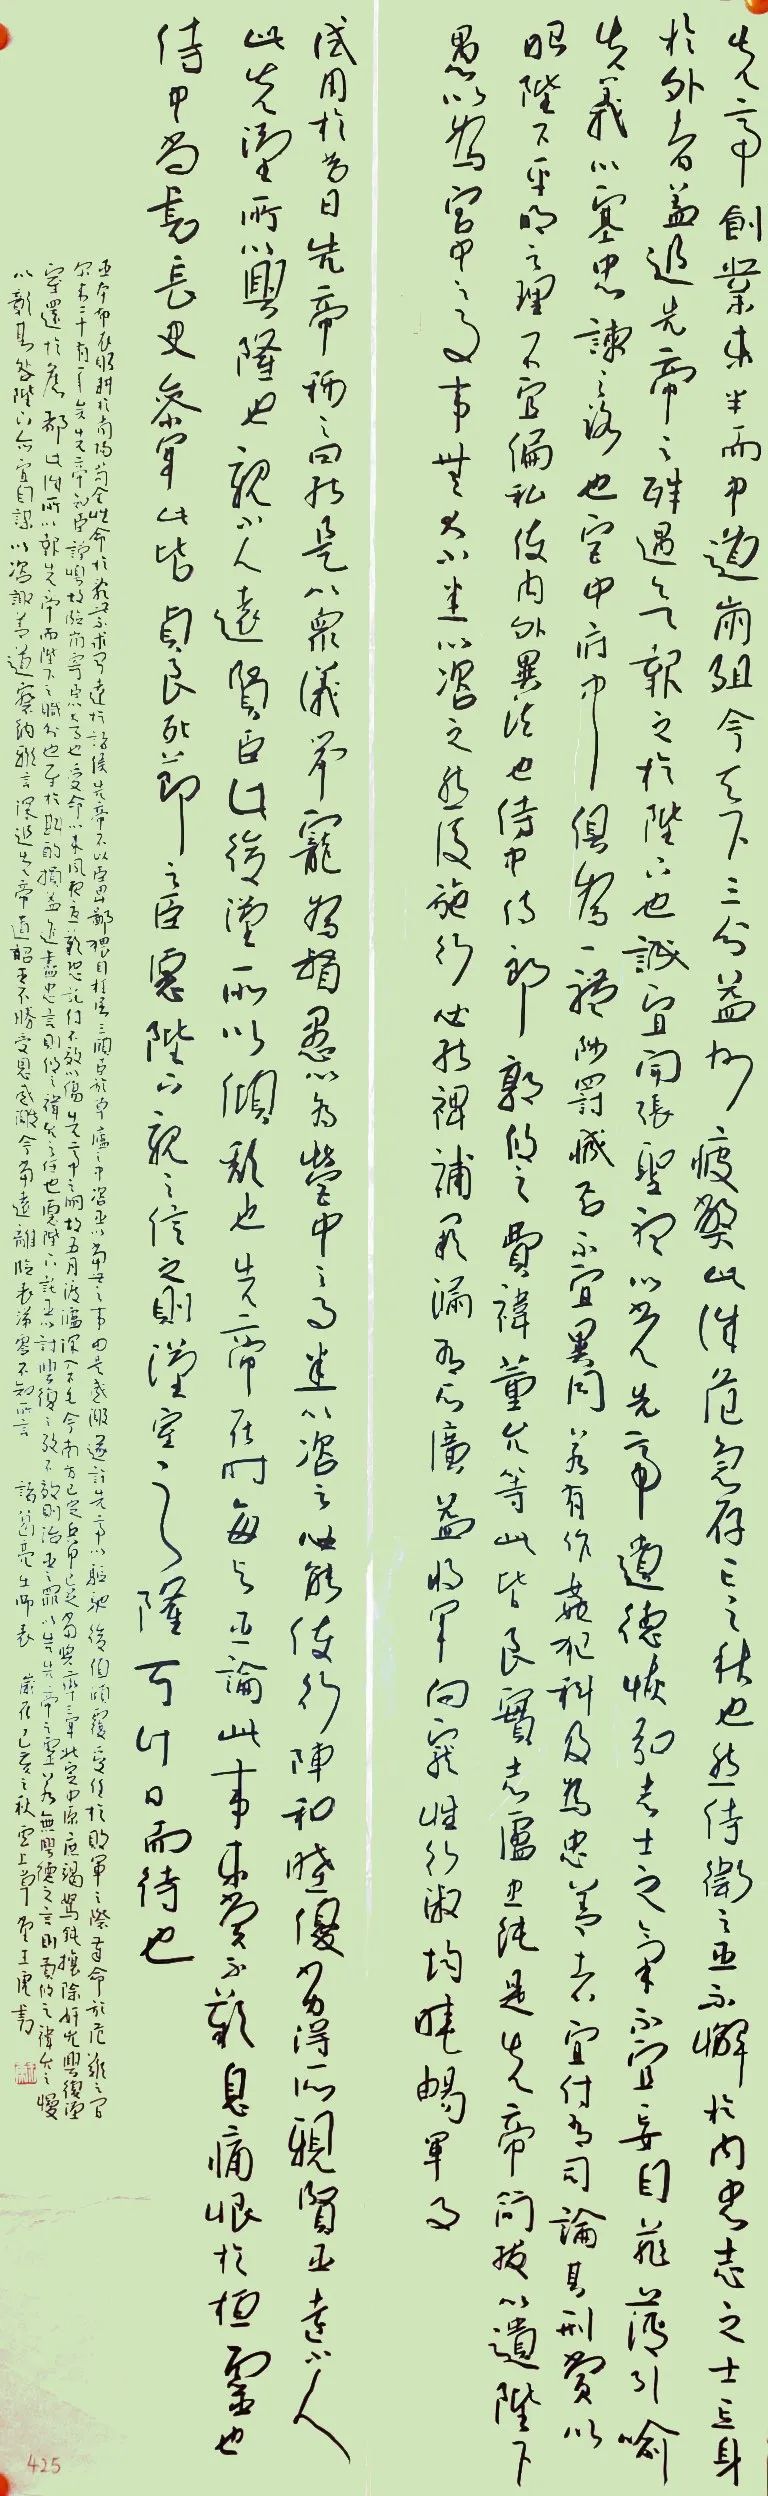 先帝創業未半而中道崩殂今天下三分益州疲弊此誠危急存亡之秋也然侍衛之臣不懈於內忠志之士忘身
於外者蓋追先帝之殊遇欲報之於陛下也誠宜開張聖聽以光先帝遺德恢弘志士之氣不宜妄自菲薄引喻
失義以塞忠諫之路也宮中府中俱為一體陟罰臧否不宜異同若有作姦犯科及為忠善者宜付有司論其刑賞以
昭陛下平明之理不宜偏私使內外異法也侍中侍郎郭攸之費禕董允等此皆良實志慮忠純是先帝簡拔以遺陛下
愚以為宮中之事事無大小悉以咨之然後施行必能裨補闕漏有所廣益將軍向寵性行淑均曉暢軍事
試用於昔日先帝稱之曰能是以眾議舉寵為督愚以為營中之事悉以咨之必能使行陣和睦優劣得所親賢臣遠小人
此先漢所以興隆也親小人遠賢臣此後漢所以傾頹也先帝在時每與臣論此事未嘗不歎息痛恨於桓靈也
侍中尚書長史參軍此皆貞良死節之臣愿陛下親之信之則漢室之隆可計日而待也
臣本布衣躬耕於南陽苟全性命於亂世不求聞達於諸侯先帝不以臣卑鄙猥自枉屈三顧臣於草廬之中咨臣以當世之事由是感激遂許先帝以驅馳後值傾覆受任於敗軍之際奉命於危難之間
爾來二十有一年矣先帝知臣謹慎故臨崩寄臣以大事也受命以來夙夜憂歎恐託付不效以傷先帝之明故五月渡瀘深入不毛今南方已定兵甲已足當獎率三軍北定中原庶竭駑鈍攘除奸兇興復漢
室還於舊都此臣所以報先帝而陛下之職分也至於斟酌損益進盡忠言則攸之禕允之任也愿陛下託臣以討賊興復之效不效則治臣之罪以告先帝之靈若無興德之言則責攸之禕允之慢
以彰其咎陛下亦宜自謀以咨諏善道察納雅言深追先帝遺詔臣不勝受恩感激今當遠離臨表涕零不知所言 諸葛亮出師表 歲在己亥之秋
425